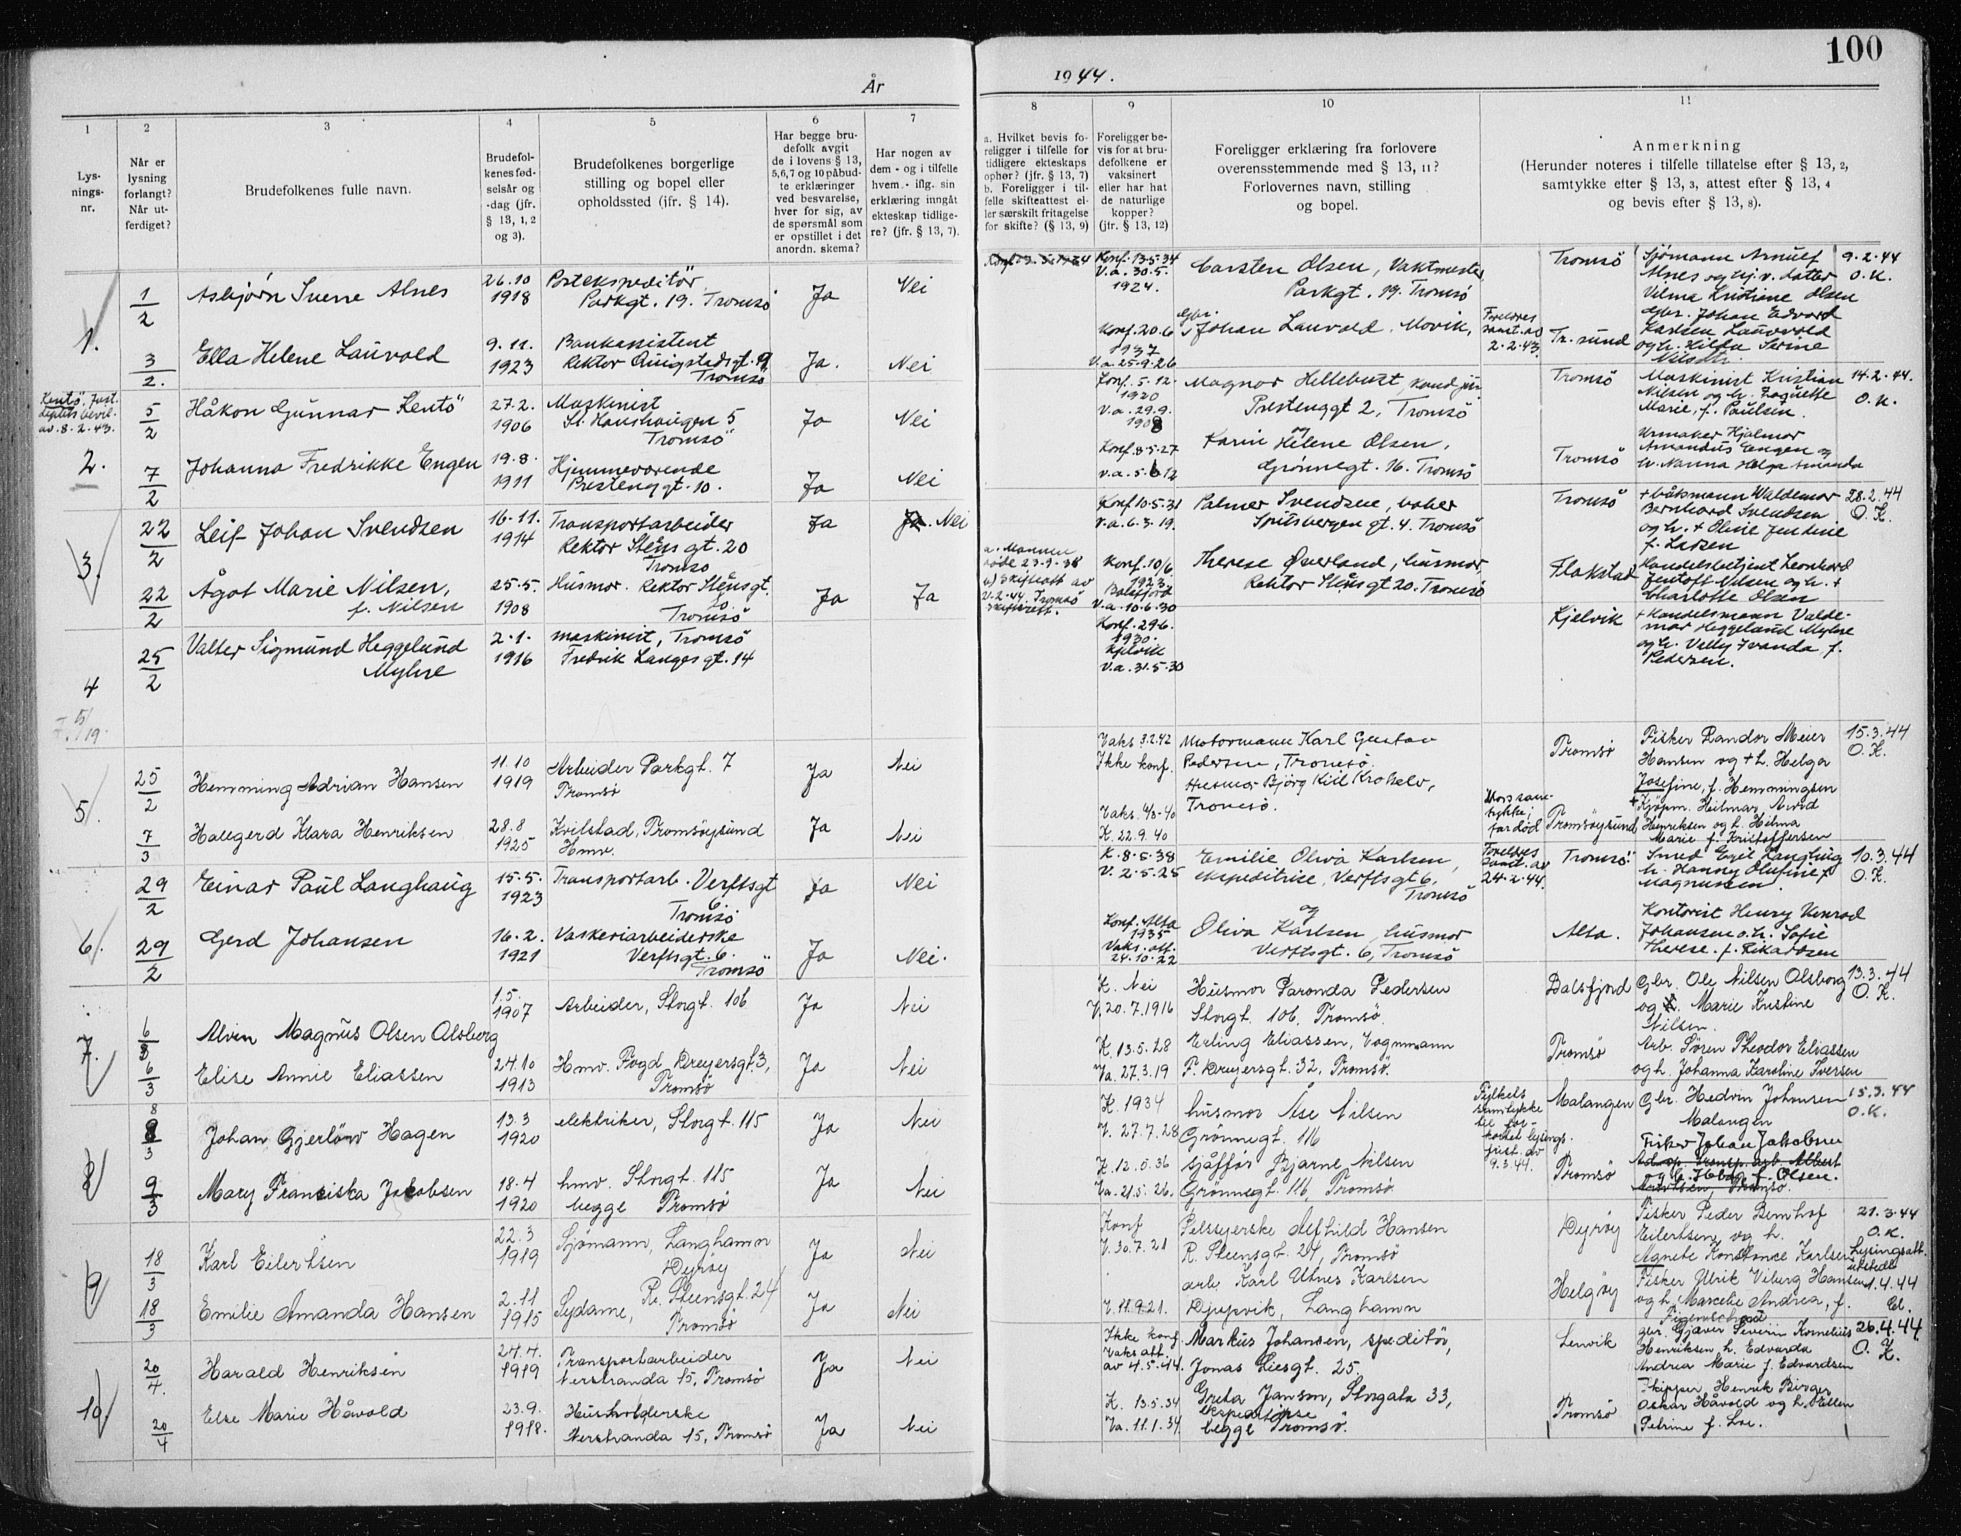 100
År
1944.
1
2
3
4
5
6
7
8
9
10
11
Lys-
nings-
nr.
Når er
lysning
forlangt?
Når ut-
ferdiget?
Brudefolkenes fulle navn.
Brudefol-
kenes fød-
selsår og
-dag (jfr.
§ 13, 1, 2
og 3).
Brudefolkenes borgerlige
stilling og bopel eller
opholdssted (jfr. § 14).
Har begge bru-
defolk avgit
de i lovens § 13,
5,6,7 og 10 påbud-
te erklæringer
ved besvarelse,
hver for sig, av
de spørsmål som
er opstillet i det
anordn. skema?
Har nogen av
dem - og i tilfelle
hvem - iflg. sin
erklæring inngått
ekteskap tidlige-
re? (jfr. § 13, 7).
a. Hvilket bevis fo-
religger i tilfelle for
tidligere ekteskaps
ophør? (jfr. § 13, 7)
b. Foreligger i til-
felle skifteattest el-
ler særskilt fritagelse
for skifte? (§ 13, 9)
Foreligger be-
vis for at bru-
defolkene er
vaksinert
eller har hat
de naturlige
kopper?
(jfr. § 13, 12)
Foreligger erklæring fra forlovere
overensstemmende med § 13, 11?
Forlovernes navn, stilling
og bopel.
Anmerkning
(Herunder noteres i tilfelle tillatelse efter § 13, 2,
samtykke efter § 13, 3, attest efter § 13, 4
og bevis efter § 13, 8).
1.
1/2
Asbjørn Sverre Alnes
26.10
1918
Postekspeditör
Parkgt. 19. Tromsö
Ja
Nei
Konf. 13.5.34
V.a. 30.5.
1924.
Carsten Olsen, Vaktmester
Parkgt. 19. Tromsö
Tromsö
Sjømann Arnulf
Alnes og uj. v. datter
Vilma Kristiane Olsen
9.2.44
O.K.
3/2.
Ella Helene Lauvold
9.11.
1923
Bankassistent
Rektor Quigstadsgt. 9
Tromsö
Ja.
Nei
Konf. 20.6
1937
V.a. 25.9.26
Gbr.
Johan Lauvold, Movik,
Foreldres
samt. av
2.2.43.
Tr.sund
Gbr. Johan Edvard
Karlsen Lauvold
og h. Hilda Serine
Nilsdtr.
Kentö. Just.
dept.s bevil.
av. 8.2.43.
2.
5/2
Håkon Gunnar Kentö
27.2.
1906
Maskinist
St. Hanshaugen 5
Tromsö
Ja
Nei
Konf. 5.12.
1920
V.a. 29.9.
1908
Magnor Hellebust, kand jur
Prestenggt 2, Tromsö
og
Tromsö
Maskinist Kristian
Nielsen og h. Jaguette
Marie, f. Paulsen.
14.2.44.
O.K.
7/2
Johanna Fredrikke Engen
19.8.
1911
Hjemmeværende
Prestenggt. 10.
Ja
Nei
Konf. 8.5.27
v.a. 5.6.12
Karin Helene Olsen,
Grønnegt. 16. Tromsö
Tromsö
Urmaker Hjalmar
Amandus Engen og
h. Nanna Helga Amanda
3.
22/2
Leif Johan Svendsen
16.11.
1914
Transportarbeider
Rektor Steens gt. 20
Tromsø
Ja
Nei
Konf. 10.5.31
v.a. 6.3.19.
Palmer Svendsen, baker
Spitsbergen gt. 4. Tromsö
Tromsö
+ båtsmann Waldemar
Bernhard Svendsen
og h. + Oline Jentine
f. Larsen
28.2.44
O.K.
22/2
Ågot Marie Nilsen,
f. Nilsen
25.5.
1908
Husmor. Rektor Steensgt.
20.
Tromsö
Ja
Ja
a. Mannen
døde 23.9.38
b) Skifteatt av
Tromsö
skifterett.
Konf. 10/6
1923.
Balsfjord
V.a. 10.6.30
Therese Överland, husmor,
Rektor Steensgt 20. Tromsö
Flakstad
Handelsbetjent Leonhard
Jentoft Nilsen og h. +
Charlotte Olsen
4
25/2
Valter Sigmund Heggelund
Myhre
2.1.
1916
maskinist, Tromsö
Fredrik Langes gt. 14
Konf. 29.6.
1930.
Kjelvik
V.a. 31.5.30
Kjelvik
+ Handelsmann Valde-
mar Heggelund Myhre
og h. Valley Ivanda, f.
Pedersen.
5/19
5.
25/2
Hemming Adrian Hansen
11.10
1919
Arbeider Parkgt. 7
Tromsø
Ja
Nei
Vaks 3.2.42
Ikke konf.
Motormann Karl Gustav
Pedersen, Tromsø.
Husmor Bjørg Kill Krokelv,
Tromsø.
Tromsø
Fisker Randor Meier
Hansen og + h. Helga
Josefine, f. Hemmingsen
15.3.44
O.K.
7/3
Hallgerd Klara Henriksen
28.8
1925
Kvilstad, Tromsøysund
Hmv.
Ja
Nei
Vaks. 4/3-40
K. 22.9.40
Mors sam-
tykke,
far död
Tromsøysund
+ Kjøpm. Hilmar Arvid
Henriksen og h. Hilma
Marie f. Kristoffersen
6.
29/2
Einar Paul Langhaug
15.5.
1923
Transportarb. Verftsgt
6.
Tromsö.
Ja
Nei
K. 8.5.38
V. 2.5.25
Emilie Oliva Karlsen,
ekspeditrise, Verftsgt 6,
Tromsö
og
Foreldres
samt. av
24.2.44.
Tromsö
Smed Egil Langhaug
h. Hanny Olufine f.
Magnussen
10.3.44
O.K.
29/2
Gerd Johansen
16.2.
1921
Vaskeriarbeiderske
Verftsgt. 6.
Tromsö
Ja
Nei.
Konf. Alta
1935
Vaks. att.
24.10.22
Oliva Karlsen, husmor
Verftsgt. 6, Tromsö
Alta.
Kontorist Henry Konrad
Johansen o.h. Sofie
Therese. f. Rikardsen
7.
6/3
Alvin Magnus Olsen Olsborg
1.5.
1907
Arbeider, Storgt. 106
Ja
Nei
K. Nei
V. 20.7.1916
Husmor Paronda Pedersen
Storgt. 106, Tromsø.
Balsfjord
Gbr. Ole Nilsen Olsborg
og h. Marie Kristine
Nilsen.
13.3.44
O.K.
6/3
Elise Annie Eliassen
24.10
1913
Hmv. Fogd Dreyersgt. 3,
Tromsø
Ja
Nei
K. 13.5.28
Va. 27.3.19
Erling Eliassen, Vognmann
F. Dreyersgt. 32, Tromsø.
Tromsø
Arb. Søren Theodor Eliassen
og h. Johanna Karoline Iversen
8
8/3
Johan Gjerløw Hagen
13.3
1920
elektriker, Storgt. 115
Ja
Nei
K. 1934
V. 27.7.28
husmor Åse Nilsen
Grønnegt. 116
Fylkets
samtykke
til for-
kortet lysings-
9.3.44.
Malangen
Gbr. Hedvin Johansen
Malangen
15.3.44
O.K.
9/3
Mary Franciska Jakobsen
18.4
1920
hmv. Storgt. 115
begge Tromsø
Ja
Nei
K. 12.5.36
Va. 21.5.26.
sjåfför Bjarne Nilsen
Grønnegt. 116, Tromsø
Tromsø
Fisker Johan Jakobsen
og h. Hilda f. Olsen.
9
18/3
Karl Eilertsen
22.3
1919
Sjømann, Langhamn
Dyrøy
Ja
Nei
Konf
V. 30.7.21
Pelssyerske Alfhild Hansen
R. Steensgt. 24, Tromsø
Dyrøy
Fisker Peder Bernhof
Eilertsen og h.
Agnete Konstance Karlsen
21.3.44
O.K.
Lysingsatt.
utstedt
1.4.44
18/3
Emilie Amanda Hansen
2.11
1915
Sydame, R. Steensgt. 24
Tromsø
Ja
Nei
V. 11.9.21.
arb. Karl Utnes Karlsen
Djupvik, Langhamn
Helgøy
Fisker Ulrik Viberg Hansen
og h. Marcelie Andrea, f.
Figenschaut
10
20/4.
Harald Henriksen
24.4.
1919
Transportarbeider
Nerstranda 15, Tromsø
Ja
Nei
Ikke konf.
Vaksatt.
av 4.5.44.
Markus Johansen, speditør,
Jonas Liesgt. 25.
Lenvik
gbr. Gjæver Severin Kornelius
Henriksen h. Edvarda
Andrea Marie f. Edvardsen
26.4.44
O.K.
20/4
Else Marie Håvold
23.9.
1918.
Husholderske
Nerstranda 15, Tromsø
Ja
Nei
K. 13.5.34
Va. 11.1.34
Greta Janson, Storgata 33,
ekspeditrise
begge Tromsø.
Tromsø
Skipper Henrik Birger
Oskar Håvold og h. Ellen
Petrine f. Loe.